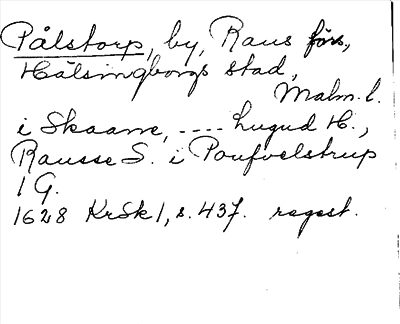 Pålstorp, by, Raus förs.,
Hälsingborgs stad,
Malm. l.
i Skaane, .... Lugud H.,
Rausse S. i Poufvelstrup
1 G.
1628 KrSk1, s. 437. regest.